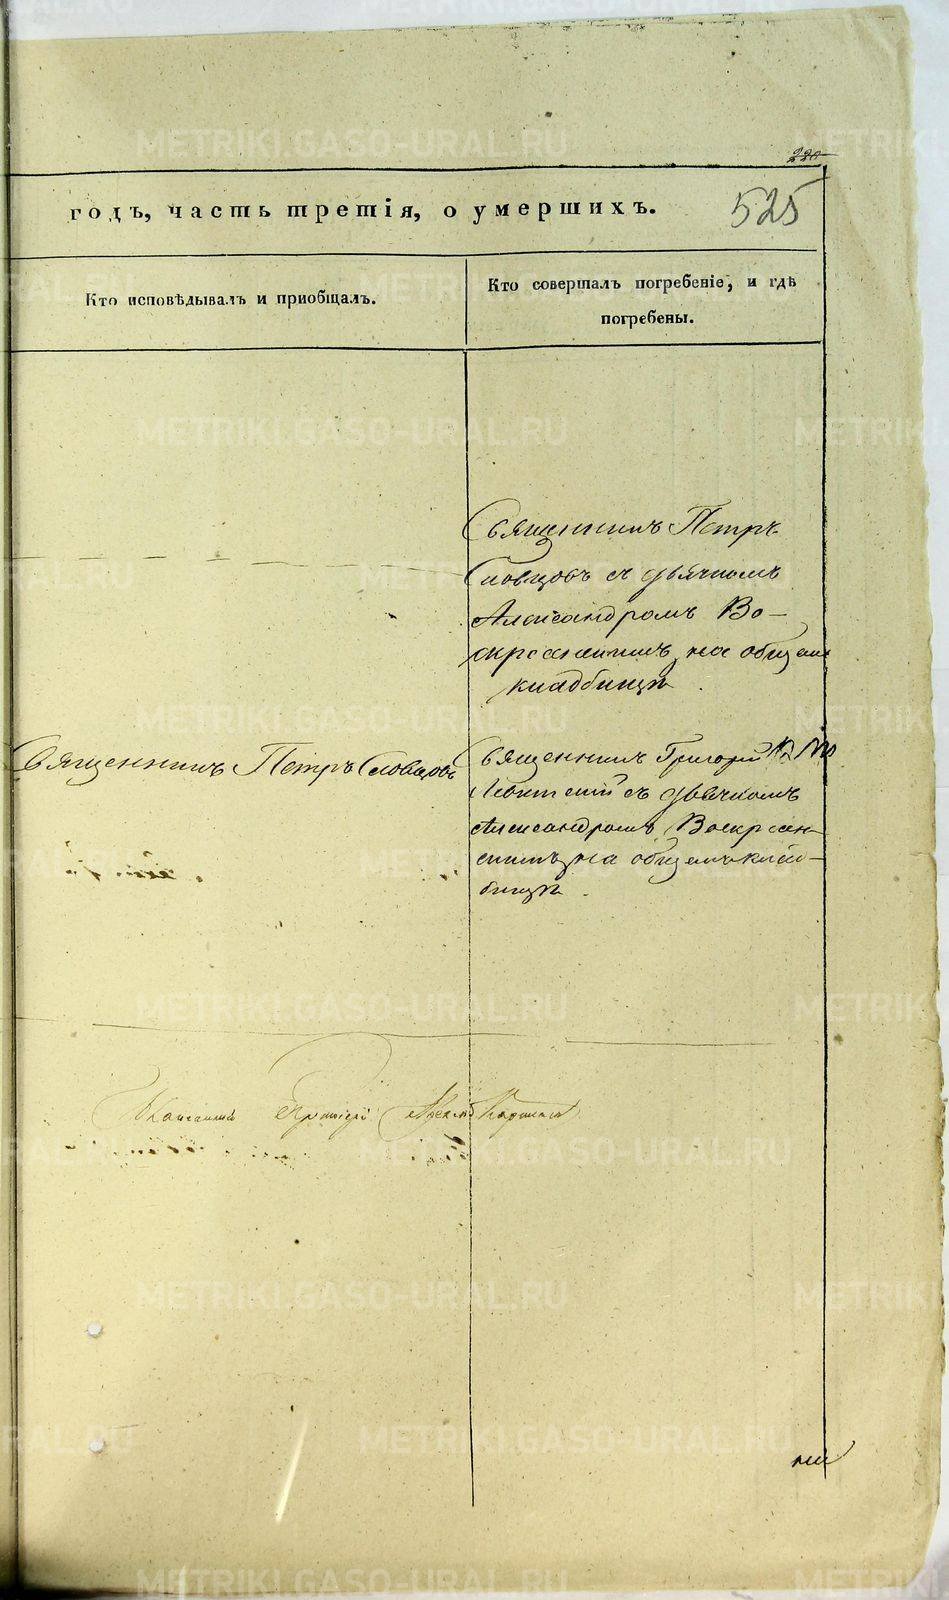 220
525
годъ, часть третія, о умершихъ.
Кто исповѣдывалъ и пріобщалъ.
Кто совершалъ погребеніе, и гдѣ
погребены.
Священникъ Петръ
Словцовъ съ дьячкомъ
Александромъ Во-
скресенскимъ, на общемъ
кладбищѣ.
Священникъ Петръ Словцовъ
Священникъ Григорій
Левитскій съ дьячкомъ
Александромъ Воскресен-
скимъ, на общемъ клад-
бищѣ.
METRIKI.GASO-URAL.RU